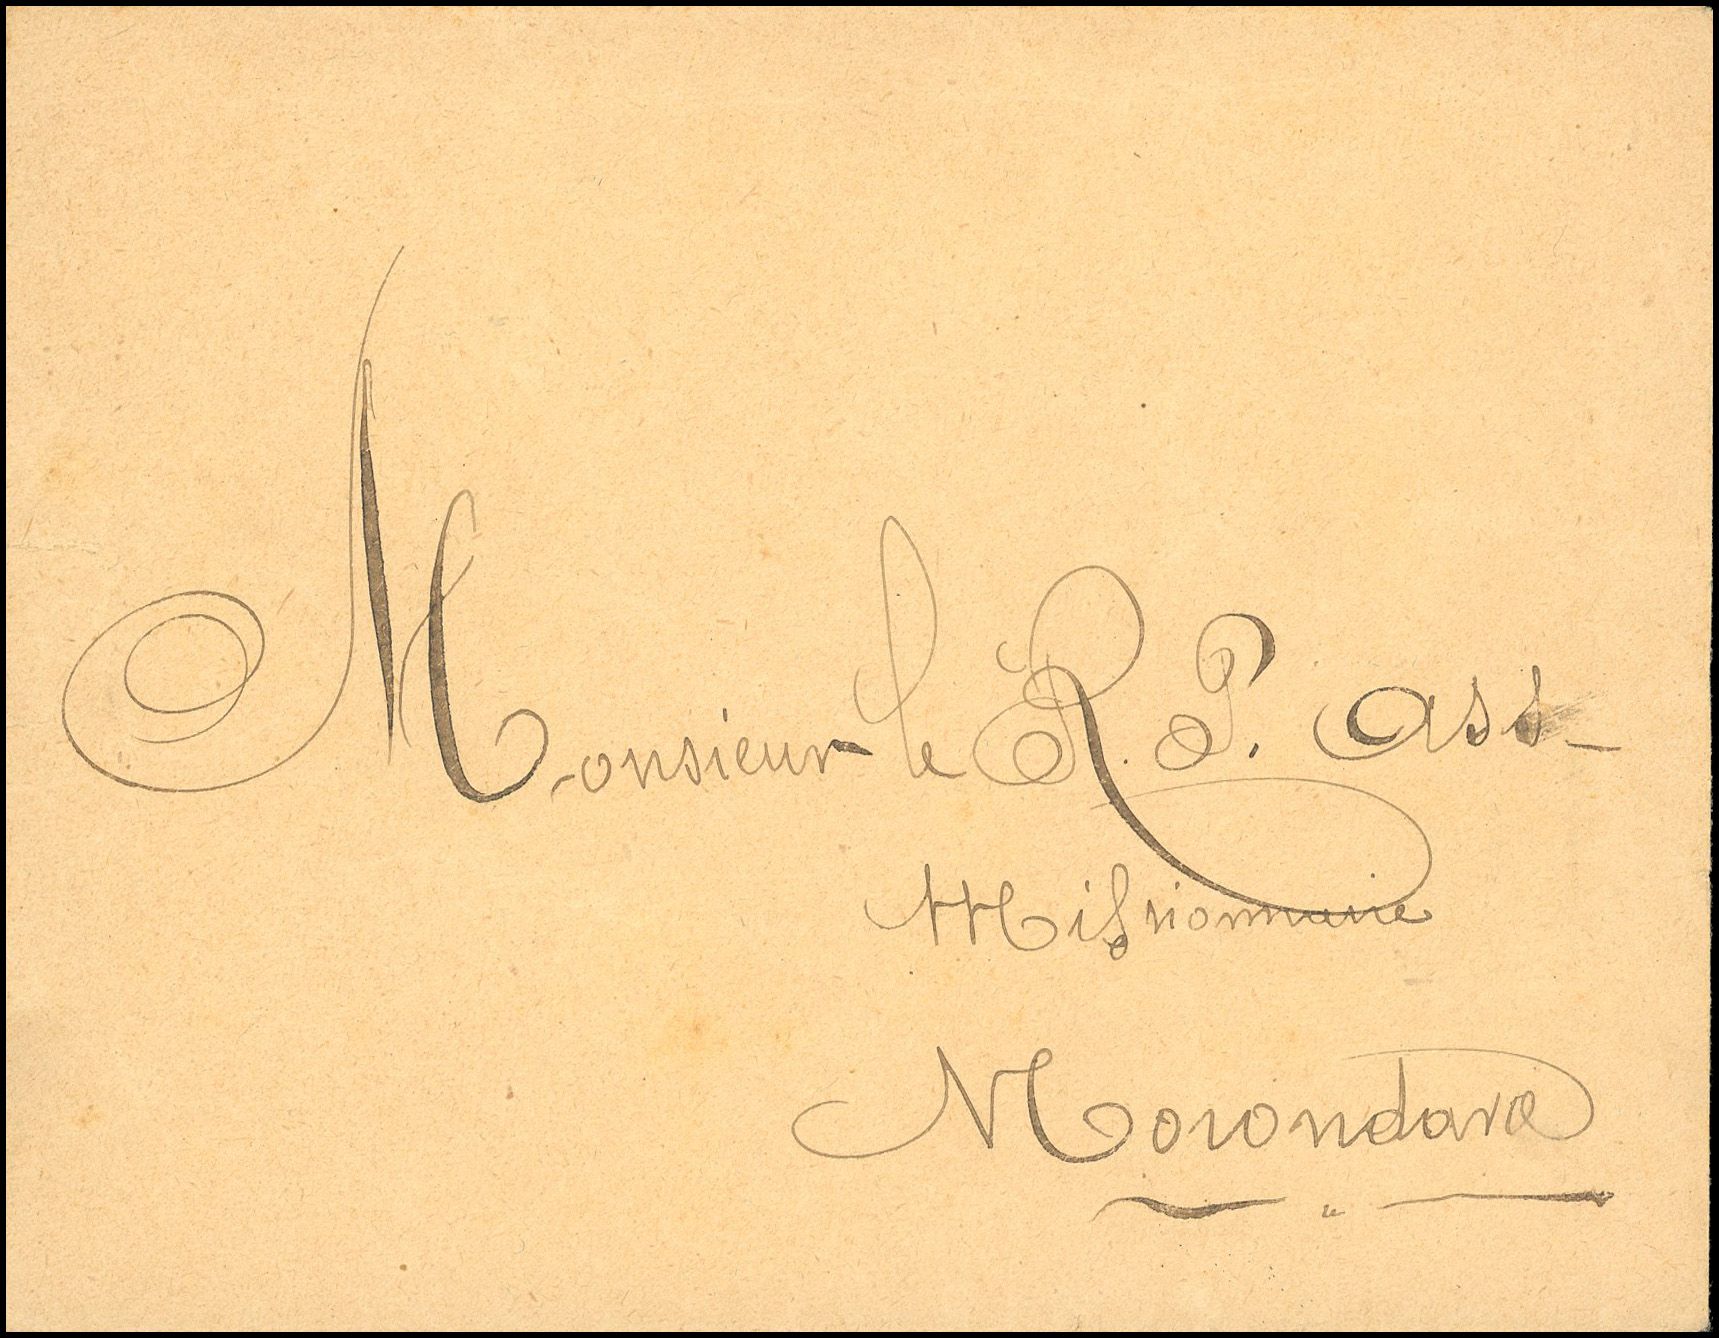 Monsieur le R. P. Ass
Missionnaire
Morondava